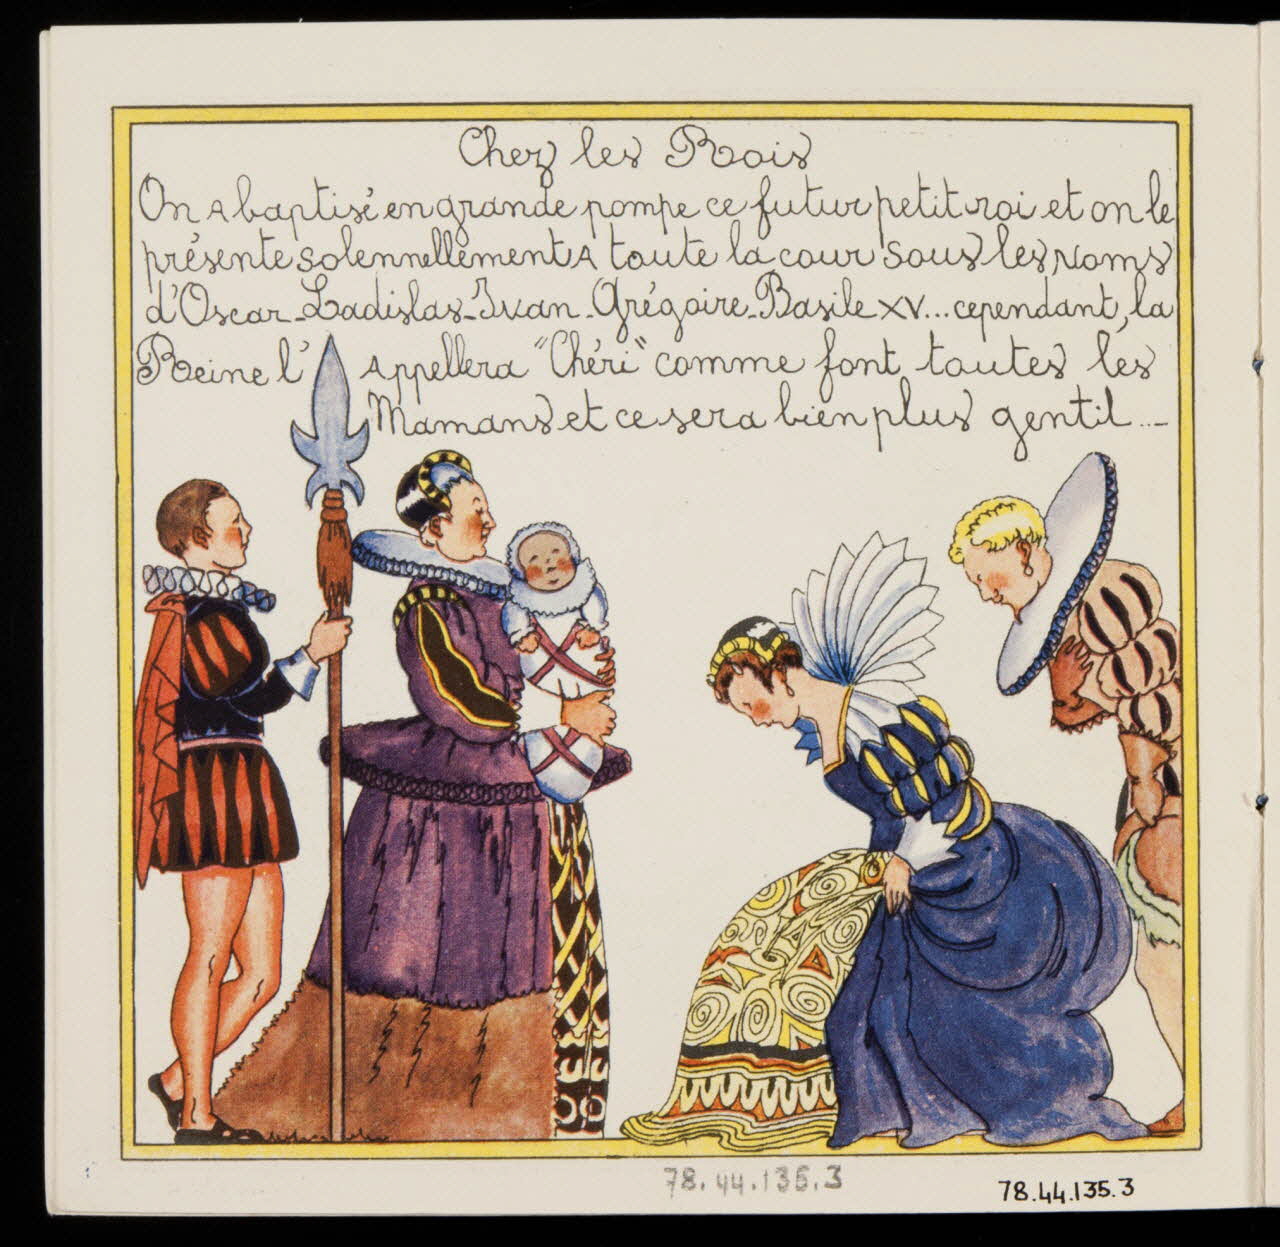 Chez les Rois
On A baptisé en grande pompe ce futur petit roi et on le
présente solennellement A toute la cour sous les Noms
d'Oscar-Ladislas-Ivan-Grégoire-Basile XV... cependant, la
Reine l' Appellera "Chéri" comme font toutes les
Mamans et ce sera bien plus gentil...
78.44.135.3
78.44.135.3